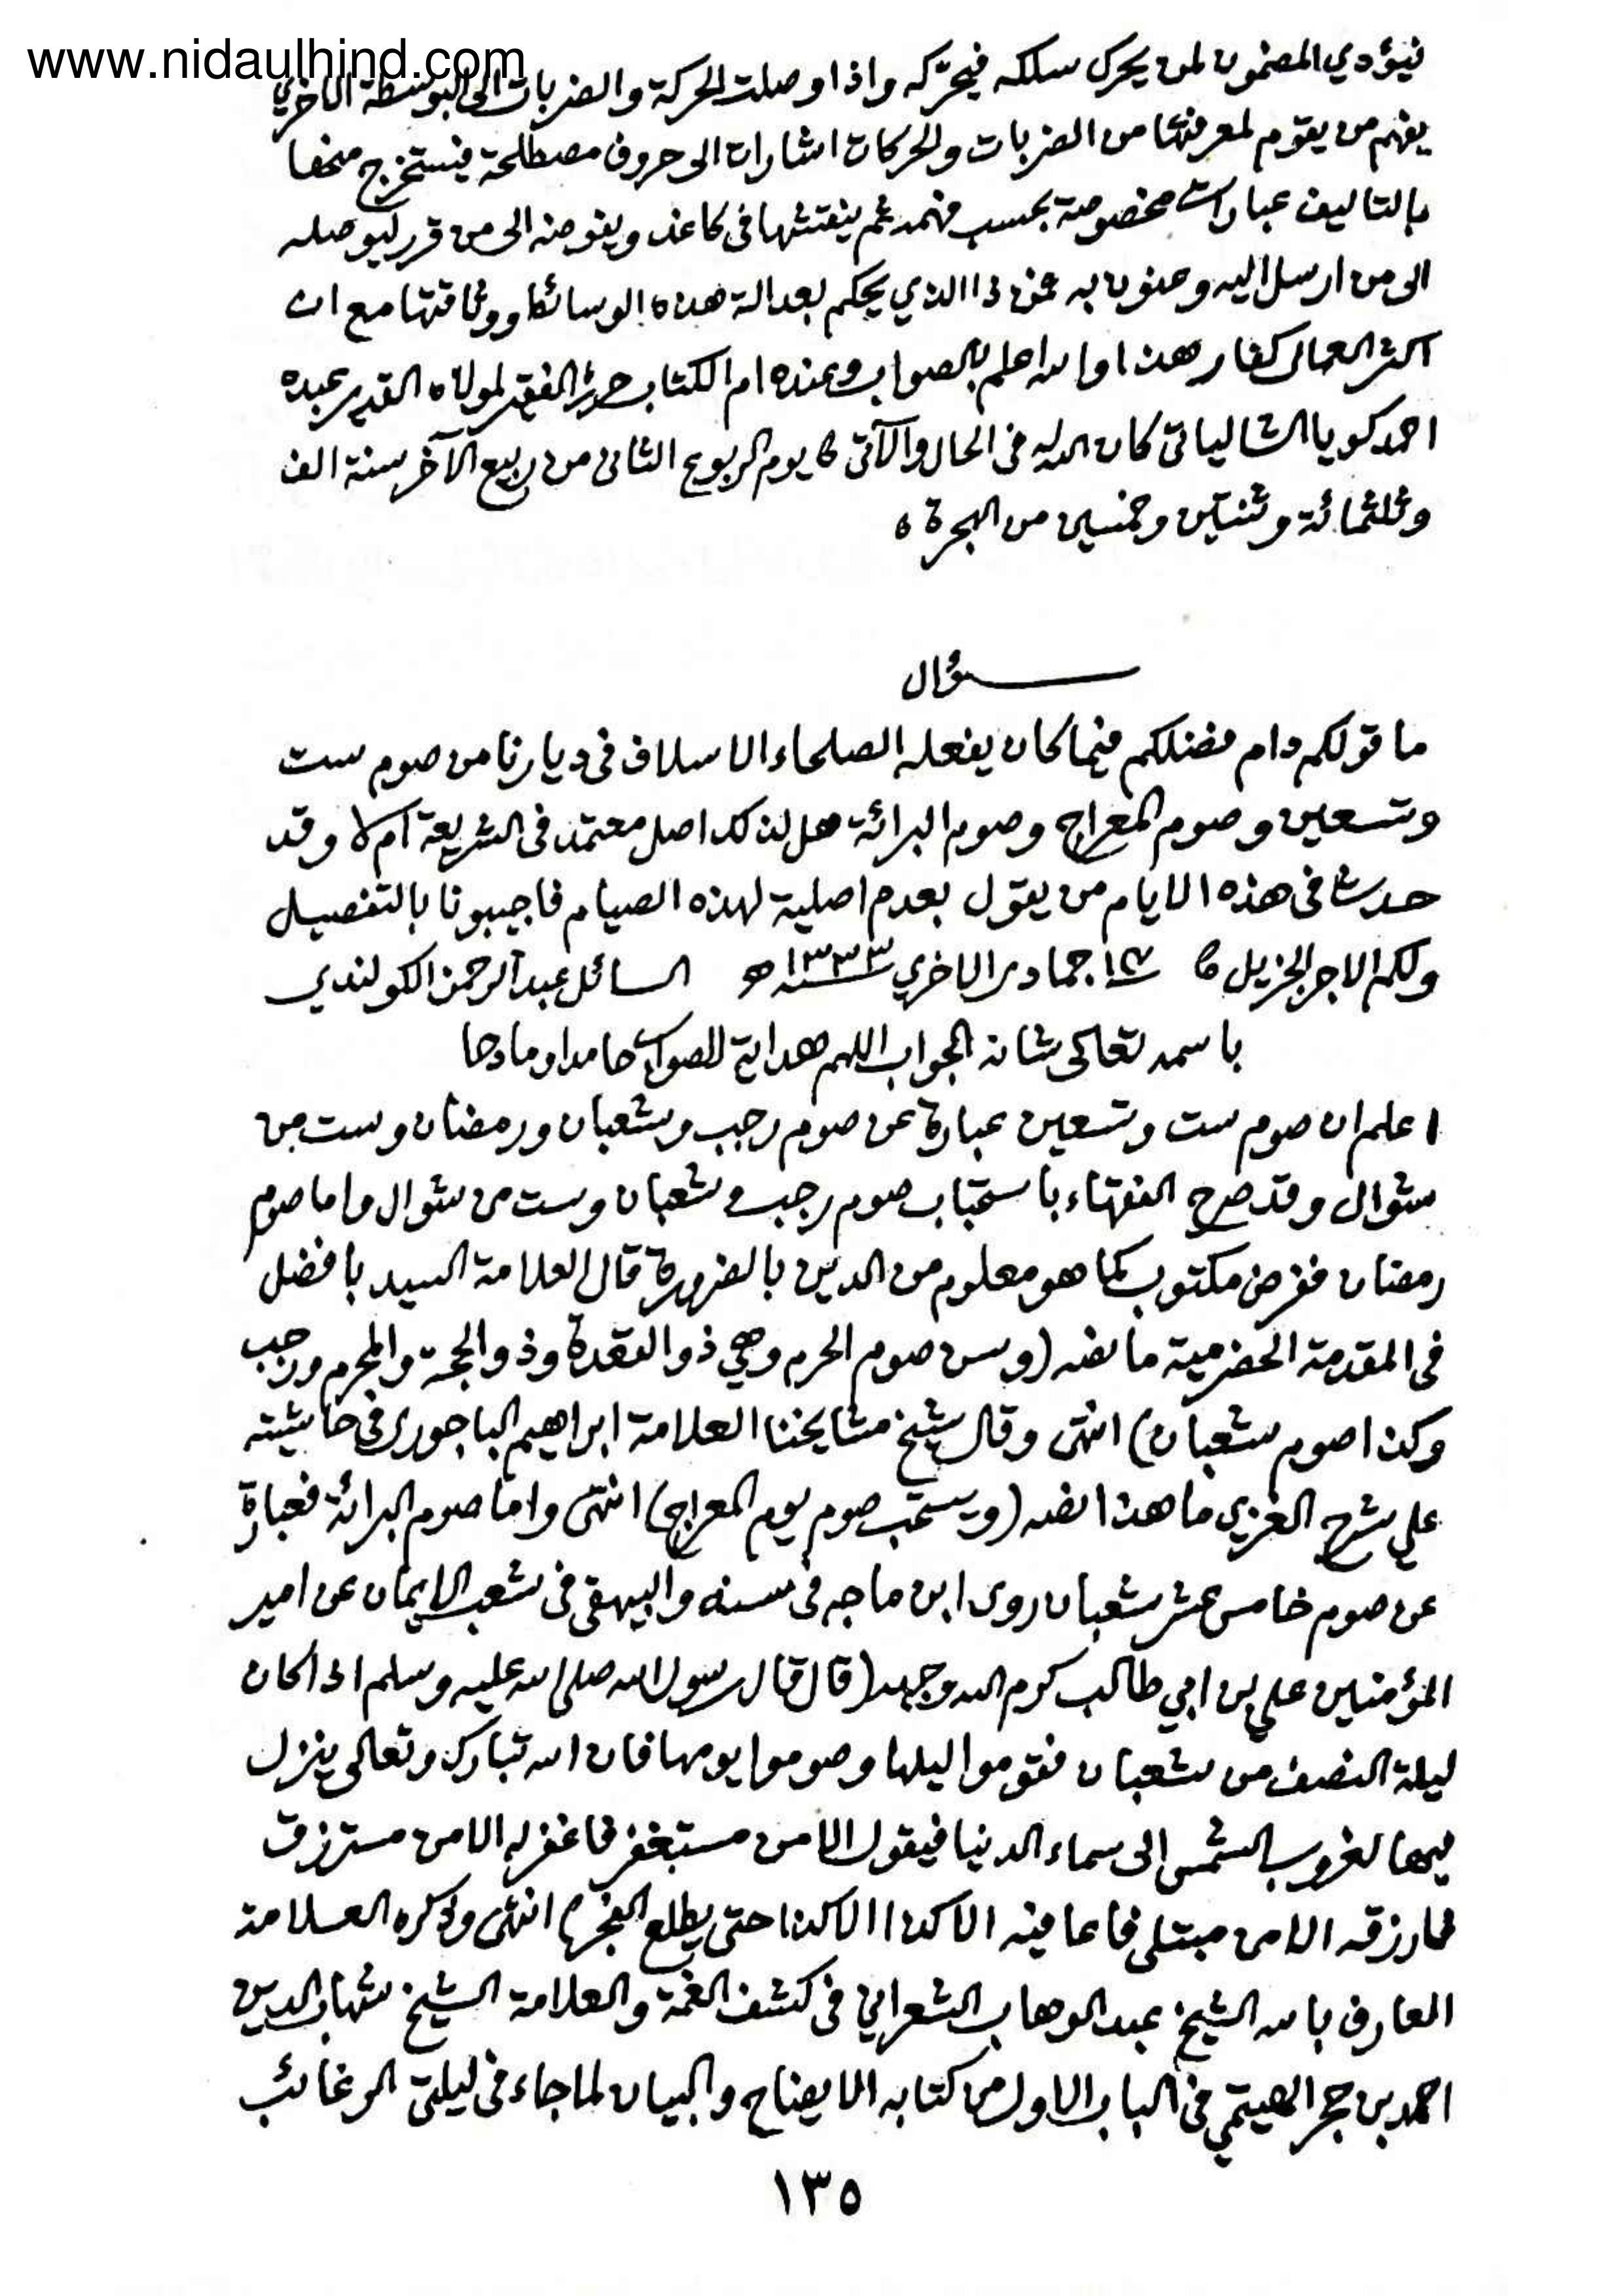 www.nidaulhind.com
فيؤدي المضمون لمن يحرك سلكه فيحركه واذا وصلت الحركة والضربات الى البوسطة الاخري
يفهم من يقوم لمعرفتها من الضربات والحركات اشارات الى حروف مصطلحة فيستخرج منها
بالتاليف عبارات مخصوصة بحسب فهمه ثم ينقشها في كاغذ ويفوضه الى من قرر ليوصله
الى من ارسل اليه وعنون به فمن ذا الذي يحكم بعدالة هذه الوسائط ووثاقتها مع ان
اكثر العمال كفار هذا والله اعلم بالصواب وعنده ام الكتاب حرره الفقير لمولاه القدير عبده
احمد كويا الشالياتي كان الله له في الحال والآتي يوم الربوع الثاني من ربيع الآخر سنة الف
وثلثمائة وثنتين وخمسين من الهجرة
سؤال
ما قولكم دام فضلكم فيما كان يفعله الصلحاء الاسلاف في ديارنا من صوم ست
وتسعين وصوم المعراج وصوم البرائة هل لذلك اصل معتمد في الشريعة ام لا وقد
حدث في هذه الايام من يقول بعدم اصلية لهذه الصيام فاجيبونا بالتفصيل
ولكم الاجر الجزيل جمادى الاخري ١٣٣٣ هـ السائل عبد الرحمن الكولندي
باسمه تعالى شانه الجواب اللهم هداية للصواب حامدا ومادحا
اعلم ان صوم ست وتسعين عبارة عن صوم رجب وشعبان ورمضان وست من
شوال وقد صرح الفقهاء باستحباب صوم رجب وشعبان وست من شوال واما صوم
رمضان ففرض مكتوب كما هو معلوم من الدين بالضرورة قال العلامة السيد بافضل
في المقدمة الحضرمية ما نصه (وسن صوم الحرم وهي ذو القعدة وذو الحجة والمحرم ورجب
وكذا صوم شعبان) انتهى وقال شيخ مشايخنا العلامة ابراهيم الباجوري في حاشيته
علي شرح الغزي ما هذا نصه (ويستحب صوم يوم المعراج) انتهى واما صوم البرائة فعبارة
عن صوم خامس عشر شعبان روى ابن ماجه في سننه والبيهقي في شعب الايمان عن امير
المؤمنين علي بن ابي طالب كرم الله وجهه (قال قال رسول الله صلى الله عليه وسلم اذا كان
ليلة النصف من شعبان فقوموا ليلها وصوموا يومها فان الله تبارك وتعالى ينزل
فيها لغروب الشمس الى سماء الدنيا فيقول الا من مستغفر فاغفر له الا من مسترزق
فارزقه الا من مبتلى فاعافيه الا كذا الا كذا حتى يطلع الفجر) انتهى وذكره العلامة
العارف بالله الشيخ عبد الوهاب الشعراني في كشف الغمة والعلامة الشيخ شهاب الدين
احمد بن حجر الهيتمي في الباب الاول من كتابه الايضاح والبيان لما جاء في ليلتي الرغائب
١٣٥